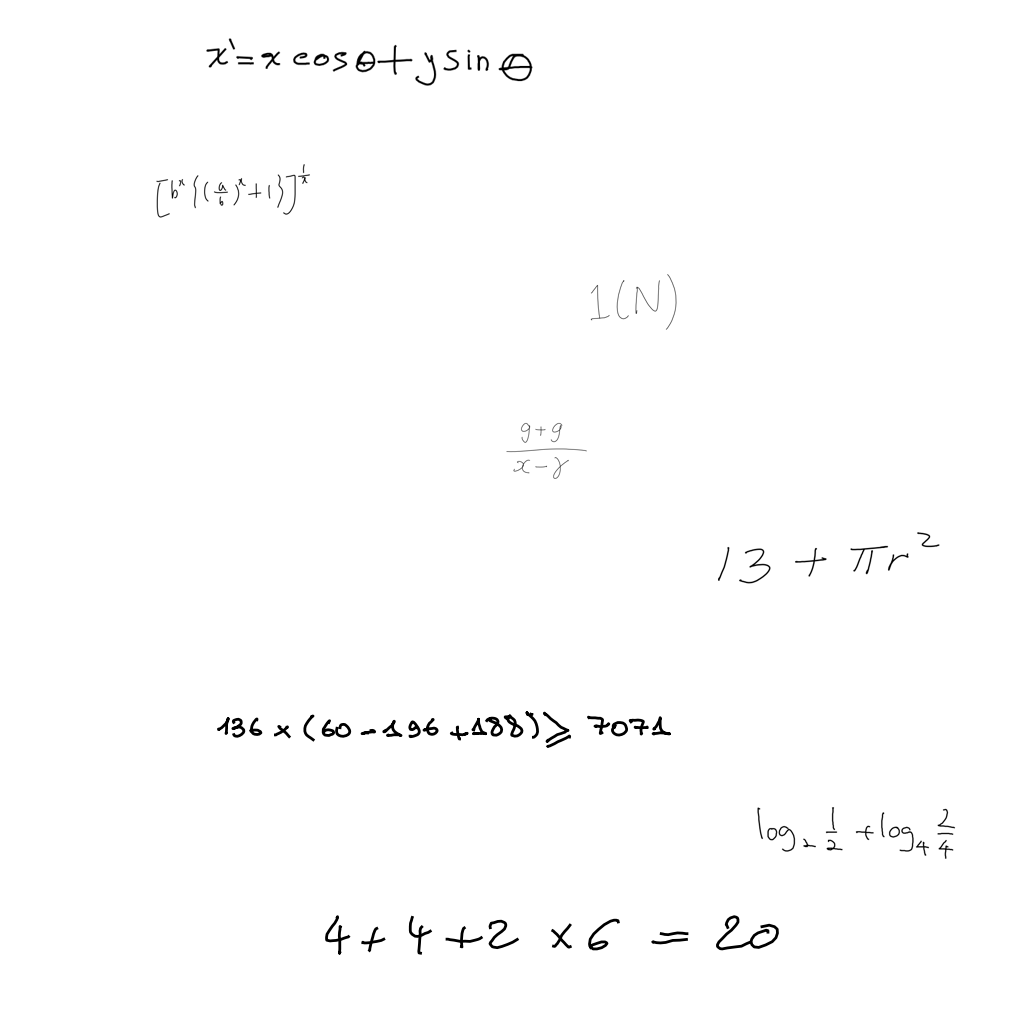 x' = x cos θ + y sin θ
[b^x {(a/b)^x + 1}]^(1/x)
1(N)
(g+g)/(x-γ)
13 + πr²
136 × (60 - 196 + 188) ⩾ 7071
log₂ 1/2 + log₄ 2/4
4 + 4 + 2 × 6 = 20